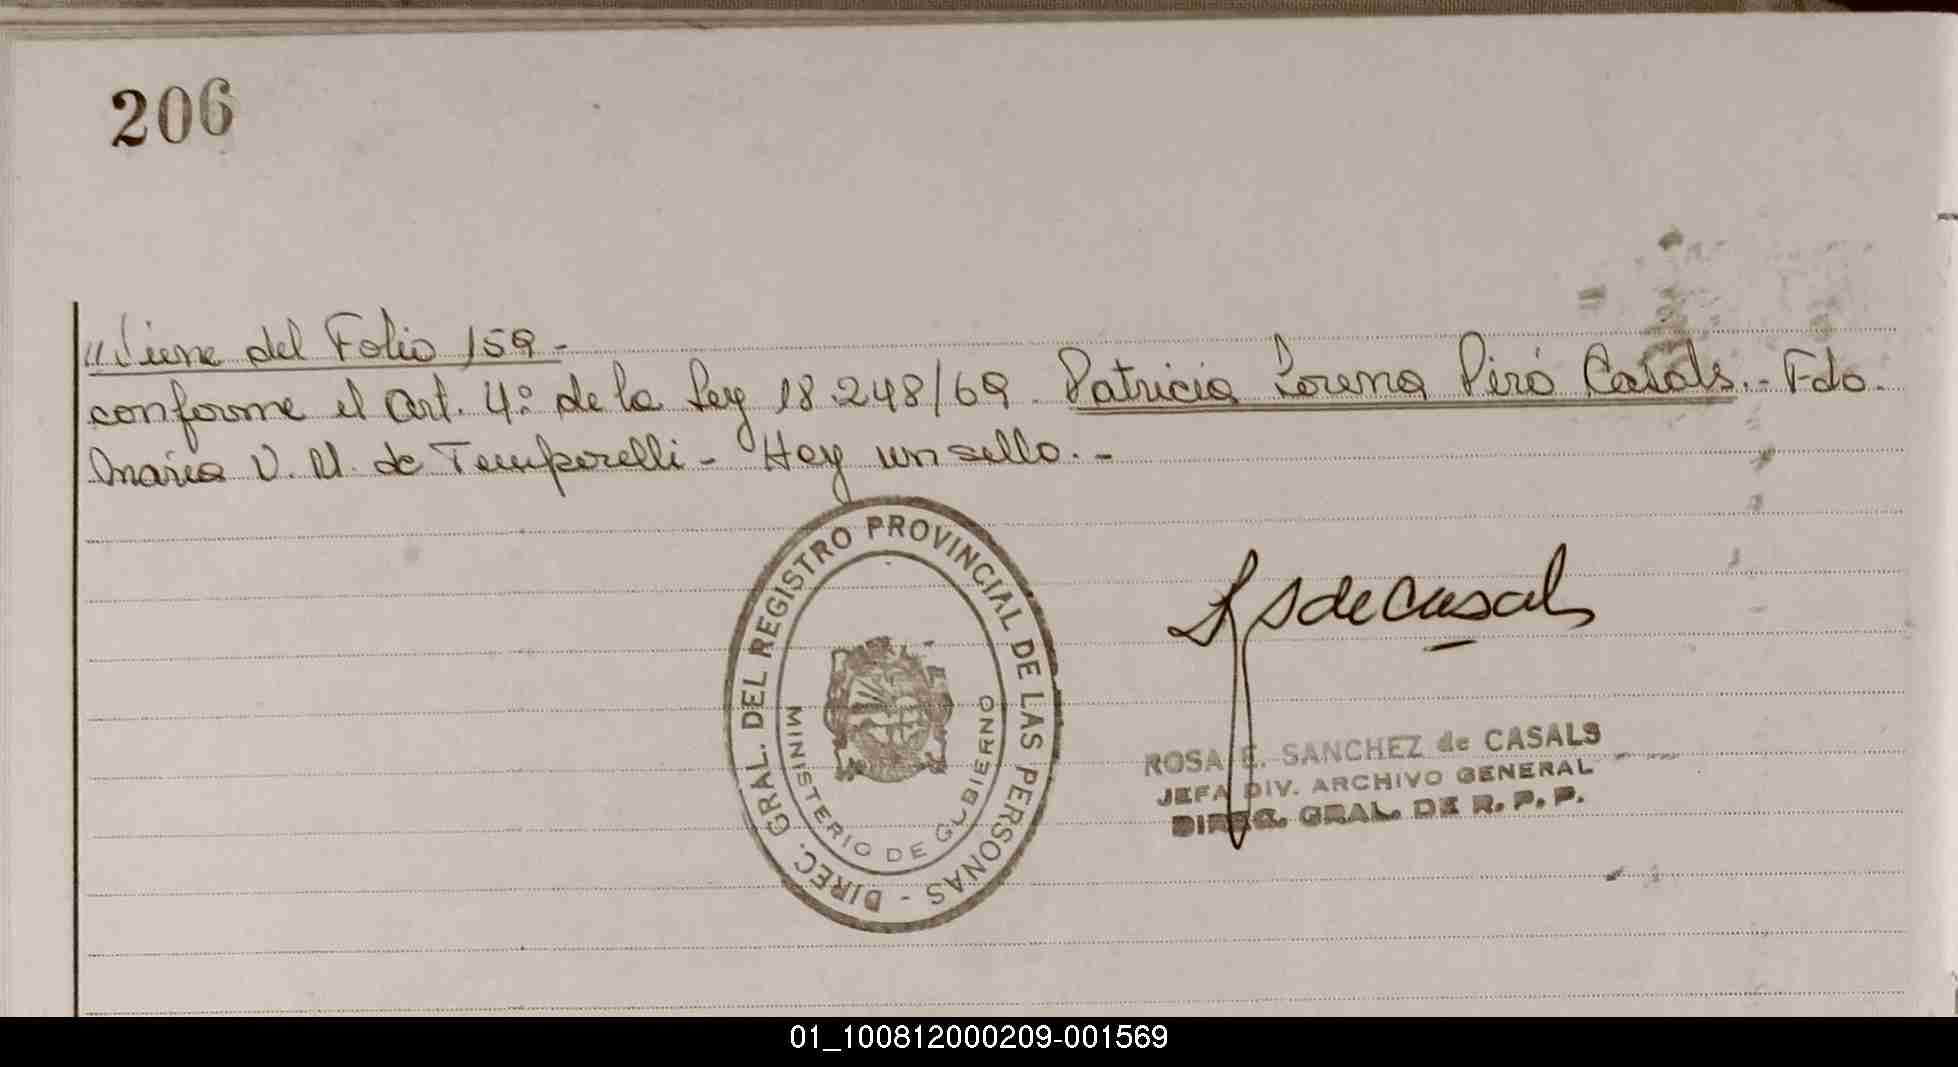 206
"Viene del Folio 159.-
conforme el art. 4º de la Ley 18.248/69. Patricia Lorena Piró Casals.- Fdo.
Maria V. M. de Temporelli - Hay un sello.-
DIREC. GRAL. DEL REGISTRO PROVINCIAL DE LAS PERSONAS -
MINISTERIO DE GOBIERNO
S de Casals
ROSA E. SANCHEZ de CASALS
JEFA DIV. ARCHIVO GENERAL
DIREC. GRAL. DE R. P. P.
01_100812000209-001569